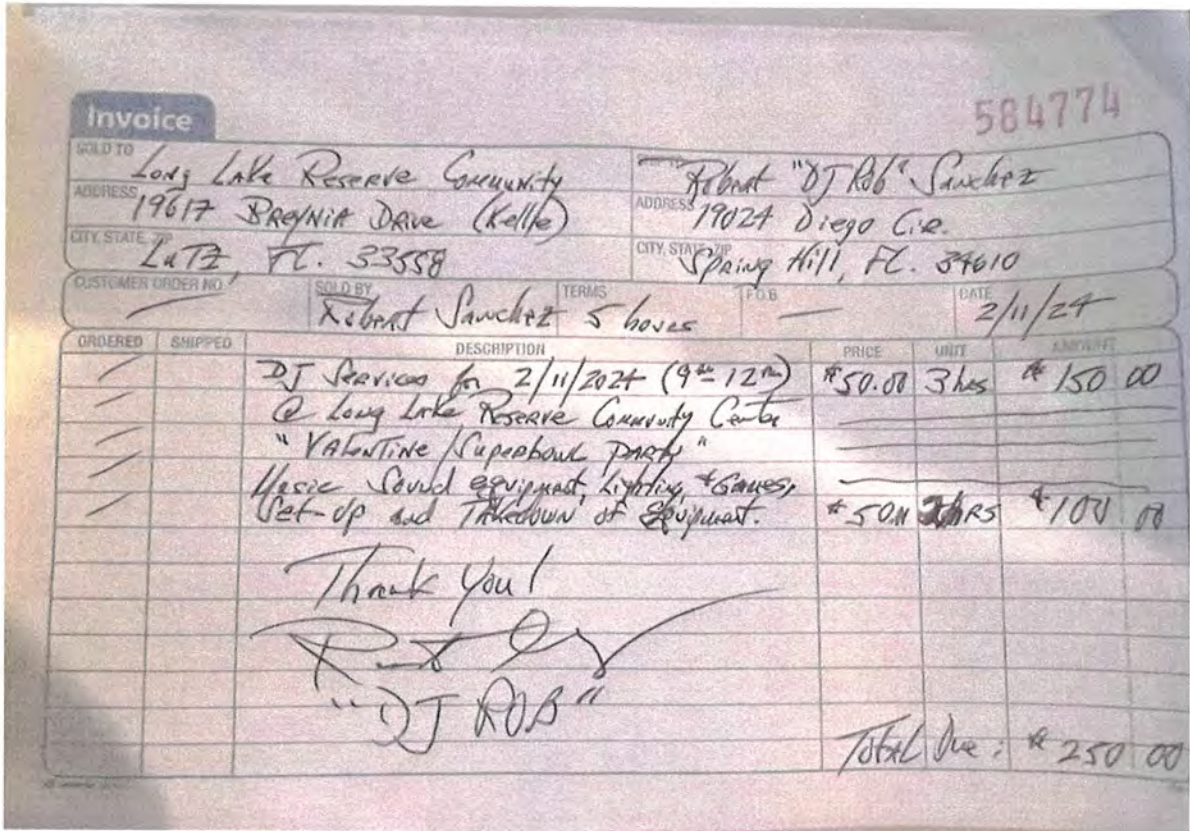 Invoice
584774
SOLD TO Long Lake Reserve Community
Robert "DJ Rob" Sanchez
ADDRESS 19617 BREYNIA DRIVE (Kellie)
ADDRESS 19024 Diego Cir.
CITY, STATE, ZIP LUTZ, FL. 33558
CITY, STATE, ZIP Spring Hill, FL. 34610
CUSTOMER ORDER NO. SOLD BY Robert Sanchez TERMS 5 hours F.O.B. DATE 2/11/24
ORDERED SHIPPED DESCRIPTION PRICE UNIT AMOUNT
DJ Services for 2/11/2024 (9am 12pm) $50.00 3 hrs $150 00
@ Long Lake Reserve Community Center
"VALENTINE/Superbowl PARTY"
Music Sound equipment, Lighting, + Games,
Set-Up and TAKEDOWN of Equipment. $50.00 2HRS $100 00
Thank You!
"DJ ROB"
Total Due: $250 00